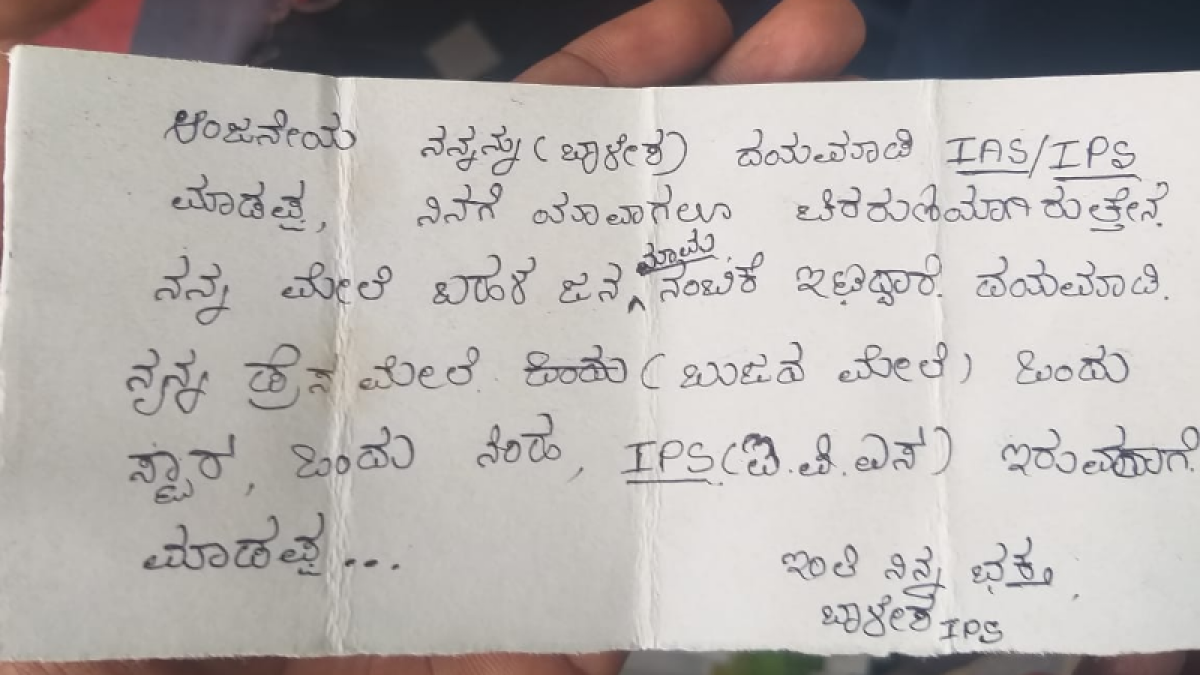 ಆಂಜನೇಯ ನನ್ನನ್ನು (ಬಾಳೇಶ) ದಯಮಾಡಿ IAS/IPS
ಮಾಡಪ್ಪ, ನಿನಗೆ ಯಾವಾಗಲೂ ಚಿರರುಣಿಯಾಗಿರುತ್ತೇನೆ.
ನನ್ನ ಮೇಲೆ ಬಹಳ ಜನ ನಂಬಿಕೆ ಇಟ್ಟಿದ್ದಾರೆ. ದಯಮಾಡಿ.
ನನ್ನ ಡ್ರೆಸ ಮೇಲೆ (ಬುಜದ ಮೇಲೆ) ಒಂದು
ಸ್ಟಾರ, ಒಂದು ಸಿಂಹ, IPS (ಐ.ಪಿ.ಎಸ) ಇರುವಹಾಗೆ.
ಮಾಡಪ್ಪ...
ಇಂತಿ ನಿನ್ನ ಭಕ್ತ,
ಬಾಳೇಶ IPS